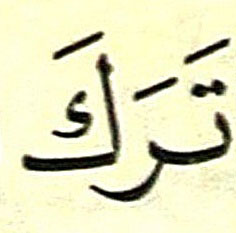 تَرَكَ